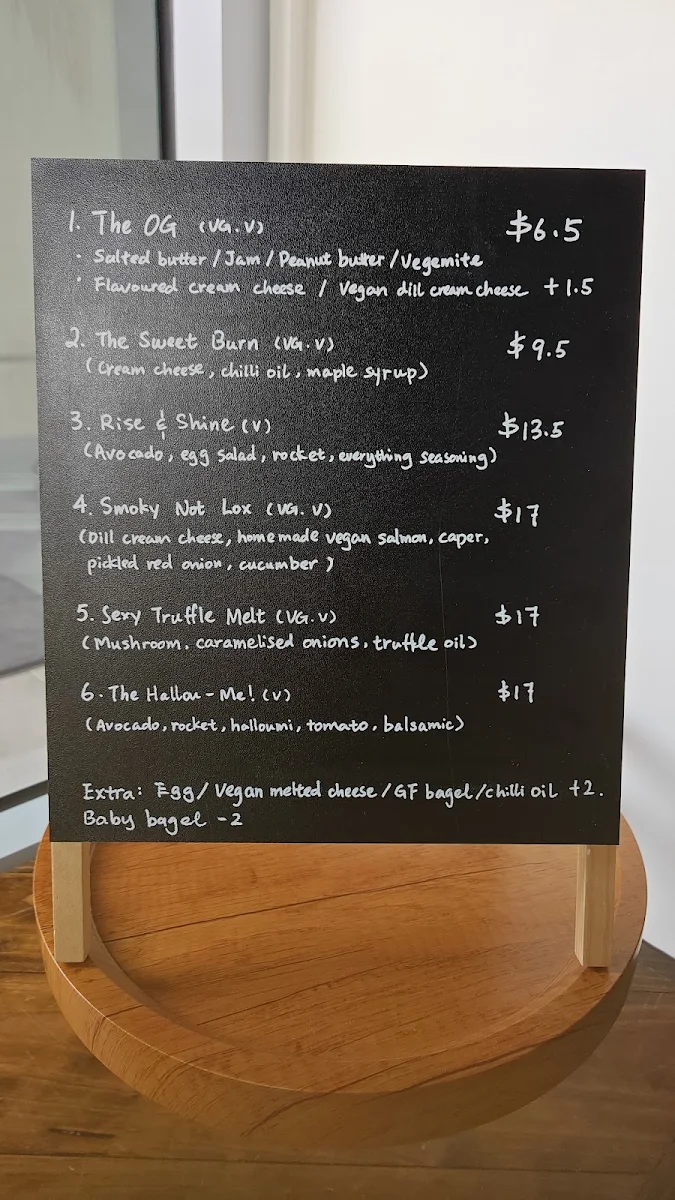 1. The OG (VG.V) $6.5
· Salted butter / Jam / Peanut butter / Vegemite
· Flavoured cream cheese / Vegan dill cream cheese +1.5
2. The Sweet Burn (VG.V) $9.5
(Cream cheese, chilli oil, maple syrup)
3. Rise & Shine (V) $13.5
(Avocado, egg salad, rocket, everything seasoning)
4. Smoky Not Lox (VG.V) $17
(Dill cream cheese, homemade vegan salmon, caper,
pickled red onion, cucumber)
5. Sexy Truffle Melt (VG.V) $17
(Mushroom, caramelised onions, truffle oil)
6. The Hallou-Me! (V) $17
(Avocado, rocket, halloumi, tomato, balsamic)
Extra: Egg / Vegan melted cheese / GF bagel / chilli oil +2.
Baby bagel -2